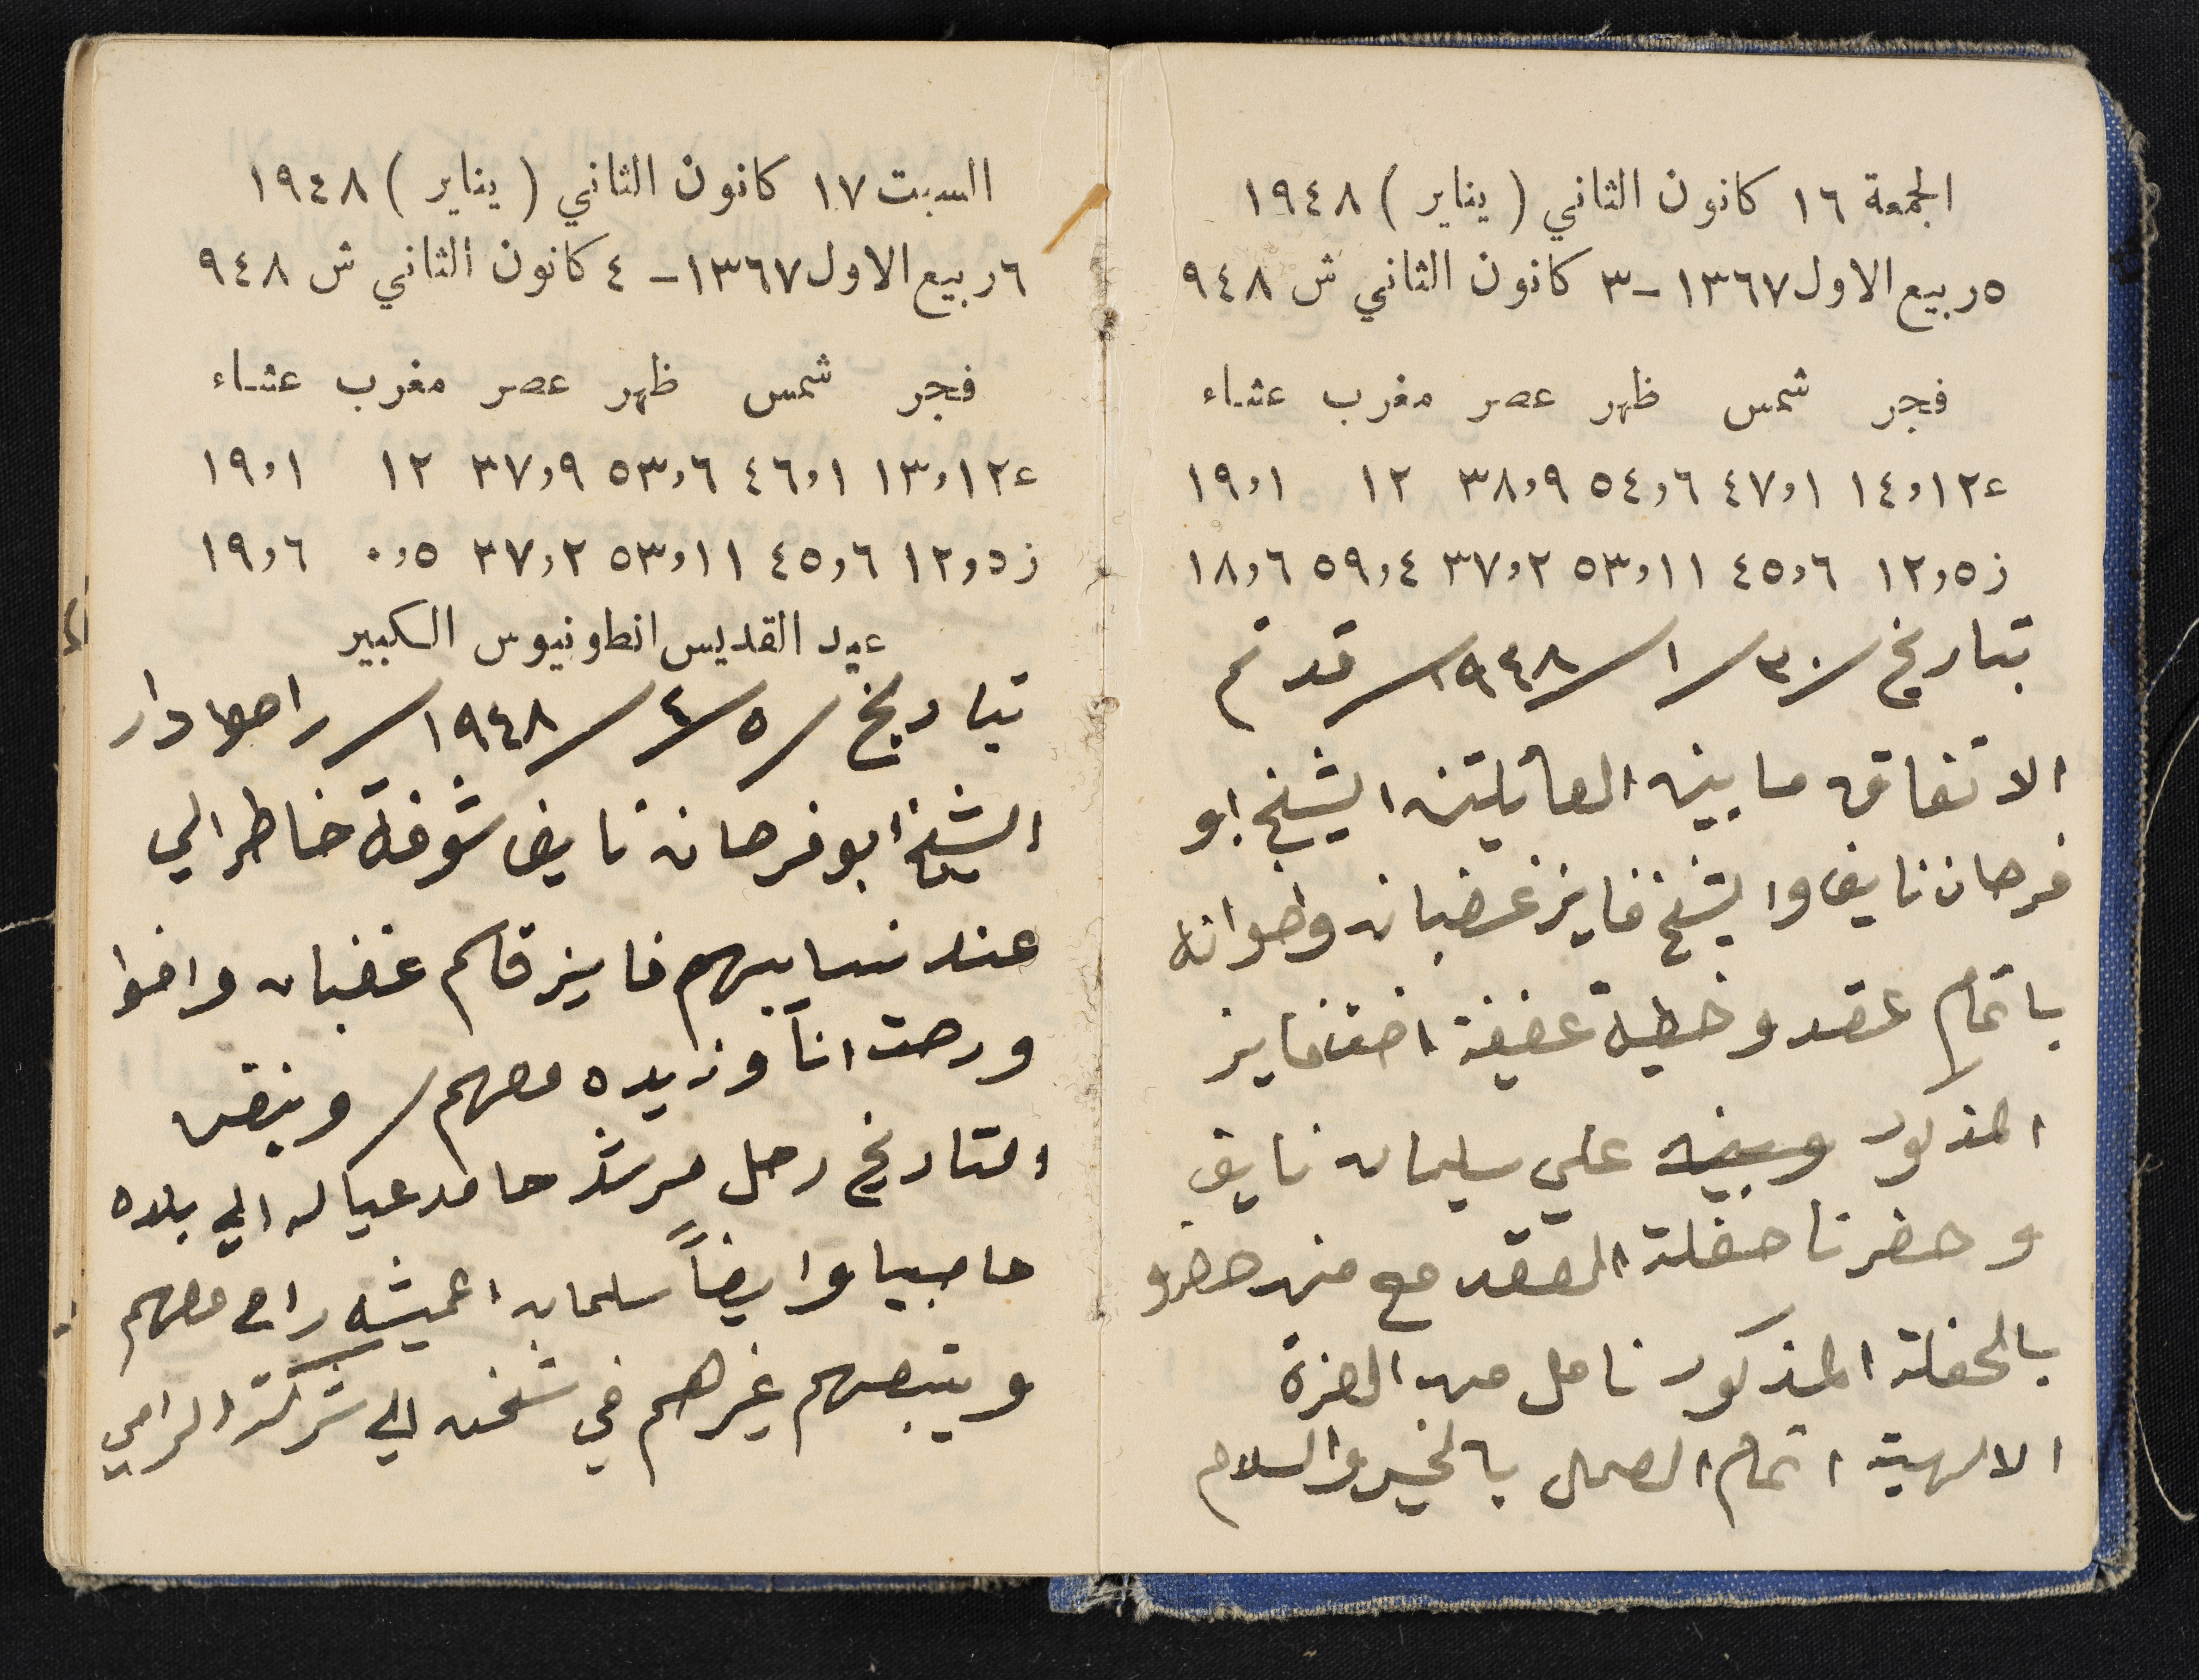 الجمعة ١٦ كانون الثاني ( يناير ) ١٩٤٨
٥ ربيع الاول ١٣٦٧ - ٣ كانون الثاني ش ٩٤٨
فجر شمس ظهر عصر مغرب عشاء
ع ١٢,١٤ ١,٤٧ ٦,٥٤ ٩,٣٨ ١٢ ١,١٩
ز ٥,١٢ ٦,٤٥ ١١,٥٣ ٢,٣٧ ٤,٥٩ ٦,١٨
بتاريخ / ٣٠ / ١ / ١٩٤٨ / قد تم
الاتفاق ما بين العائلتين الشيخ ابو
فرحان نايف والشيخ فايز غضبان واخوانه
باتمام عقد وخطبة عفيفة اخت فايز
المذكور وبينه علي سليمان نايف
وحضرنا حفلة العقد مع من حضرو
بالحفلة المذكور نامل من العزة
الالهية اتمام العمل بالخير والسلام
السبت ١٧ كانون الثاني ( يناير ) ١٩٤٨
٦ ربيع الاول ١٣٦٧ - ٤ كانون الثاني ش ٩٤٨
فجر شمس ظهر عصر مغرب عشاء
ع ١٢,١٣ ١,٤٦ ٦,٥٣ ٩,٣٧ ١٢ ١,١٩
ز ٥,١٢ ٦,٤٥ ١١,٥٣ ٢,٣٧ ٥,٠ ٦,١٩
عيد القديس انطونيوس الكبير
بتاريخ / ٥ / ٤ / ١٩٤٨ / راحوا دار
الشيخ ابو فرحان نايف شوفة خاطر الي
عند نسايبهم فايز قاسم غضبان واخوا
ورحت انا وزيده معهم / وبنفس
التاريخ رحل مرشد حامد عياله الي بلده
حاصبيا وايضاً سلمان اعميشه راح معهم
ويتبعهم غيرهم في شحن الي شركة الرامي